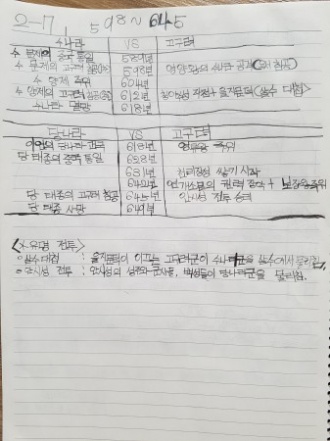 2-17 598~645
수나라 VS 고구려
수 문제의 중국 통일 589년
수 문제의 고구려 침공 598년 영양왕의 수나라 공격
수 양제 즉위 604년
수 양제의 고구려 침공 612년 을지문덕 (살수 대첩)
수나라 멸망 618년
당나라 VS 고구려
이연의 당나라 건국 618년 영류왕 즉위
당 태종의 중국 통일 628년
631년 천리장성 쌓기 시작
642년 연개소문의 권력 장악 + 보장왕 즉위
당 태종의 고구려 침공 645년 안시성 전투 승리
당 태종 사망 649년
<유명 전투>
살수대첩 : 을지문덕이 이끄는 고구려군이 수나라군을 살수에서 물리침.
안시성 전투 : 안시성의 성주와 군사들, 백성들이 당나라군을 물리침.